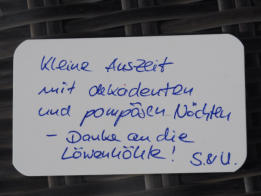 Kleine Auszeit
mit dekadenten
und pompösen Nächten
– Danke an die
Löwenhöhle! S.&U.